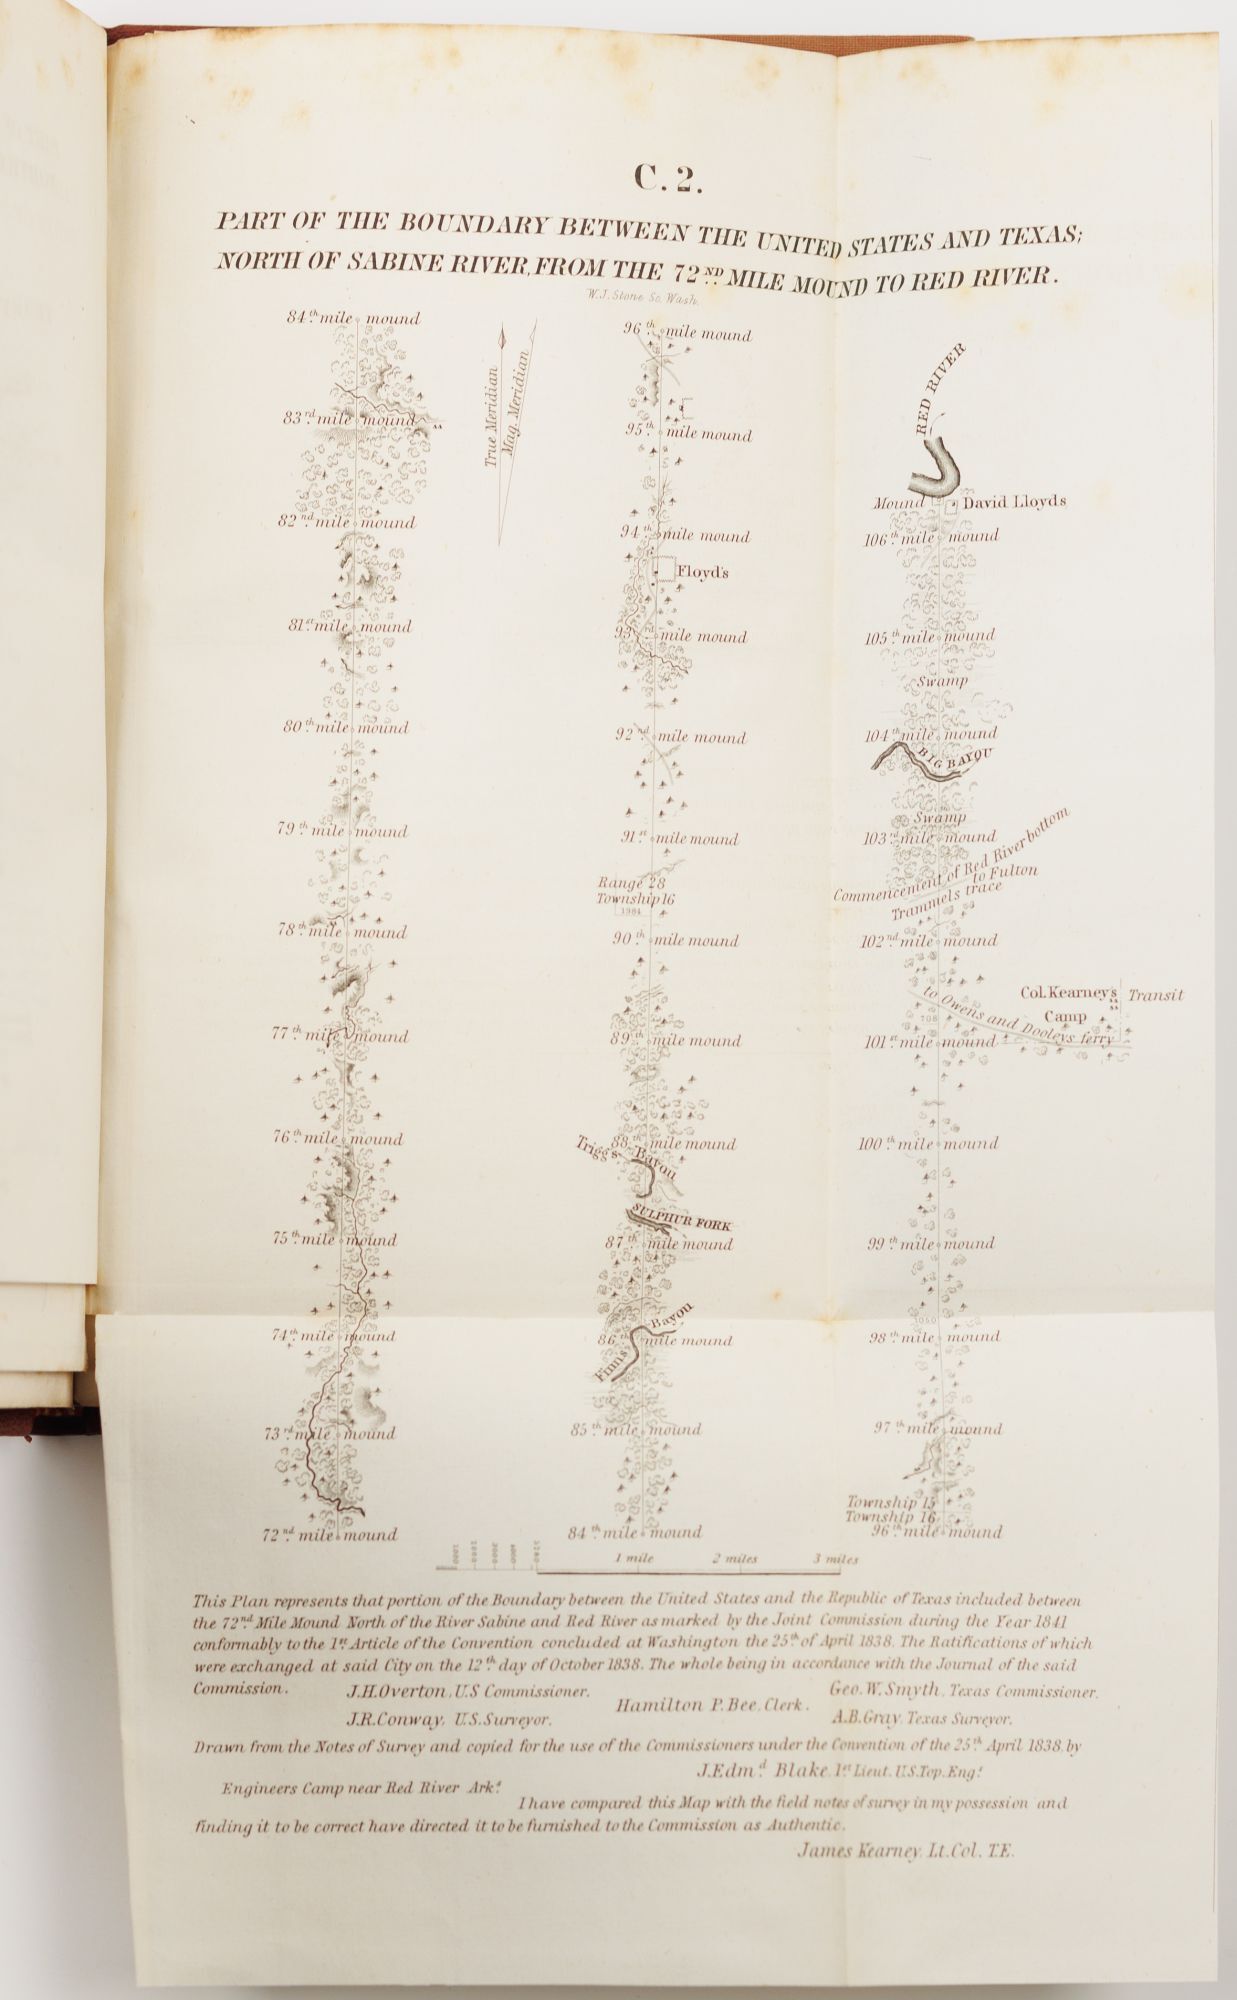 C. 2.
PART OF THE BOUNDARY BETWEEN THE UNITED STATES AND TEXAS;
NORTH OF SABINE RIVER, FROM THE 72ND MILE MOUND TO RED RIVER.
W.J. Stone Sc. Wash.
84th mile mound
83rd mile mound
82nd mile mound
81st mile mound
80th mile mound
79th mile mound
78th mile mound
77th mile mound
76th mile mound
75th mile mound
74th mile mound
73rd mile mound
72nd mile mound
True Meridian
Mag. Meridian
96th mile mound
95th mile mound
94th mile mound
Floyd's
93rd mile mound
92nd mile mound
91st mile mound
Range 28
Township 16
90th mile mound
89th mile mound
88 mile mound
Trigg's Bayou
SULPHUR FORK
87th mile mound
Finns Bayou
86 mile mound
85th mile mound
84th mile mound
RED RIVER
Mound
David Lloyds
106th mile mound
105th mile mound
Swamp
104th mile mound
BIG BAYOU
Swamp
103rd mile mound
Commencement of Red River bottom
to Fulton
Trammels trace
102nd mile mound
Col. Kearney's
Camp
Transit
to Owens and Dooleys ferry
101st mile mound
100th mile mound
99th mile mound
98th mile mound
97th mile mound
Township 15
Township 16
96th mile mound
1 mile 2 miles 3 miles
This Plan represents that portion of the Boundary between the United States and the Republic of Texas included between
the 72nd Mile Mound North of the River Sabine and Red River as marked by the Joint Commission during the Year 1841
conformably to the 1st Article of the Convention concluded at Washington the 25th of April 1838. The Ratifications of which
were exchanged at said City on the 12th day of October 1838. The whole being in accordance with the Journal of the said
Commission.
J.H. Overton, U.S Commissioner.
Geo. W. Smyth, Texas Commissioner.
Hamilton P. Bee, Clerk.
J.R. Conway, U.S. Surveyor.
A.B. Gray, Texas Surveyor.
Drawn from the Notes of Survey and copied for the use of the Commissioners under the Convention of the 25th April 1838, by
J. Edmd Blake, 1st Lieut. U.S. Top. Engs
Engineers Camp near Red River Arks
I have compared this Map with the field notes of survey in my possession and
finding it to be correct have directed it to be furnished to the Commission as Authentic.
James Kearney, Lt. Col. T.E.